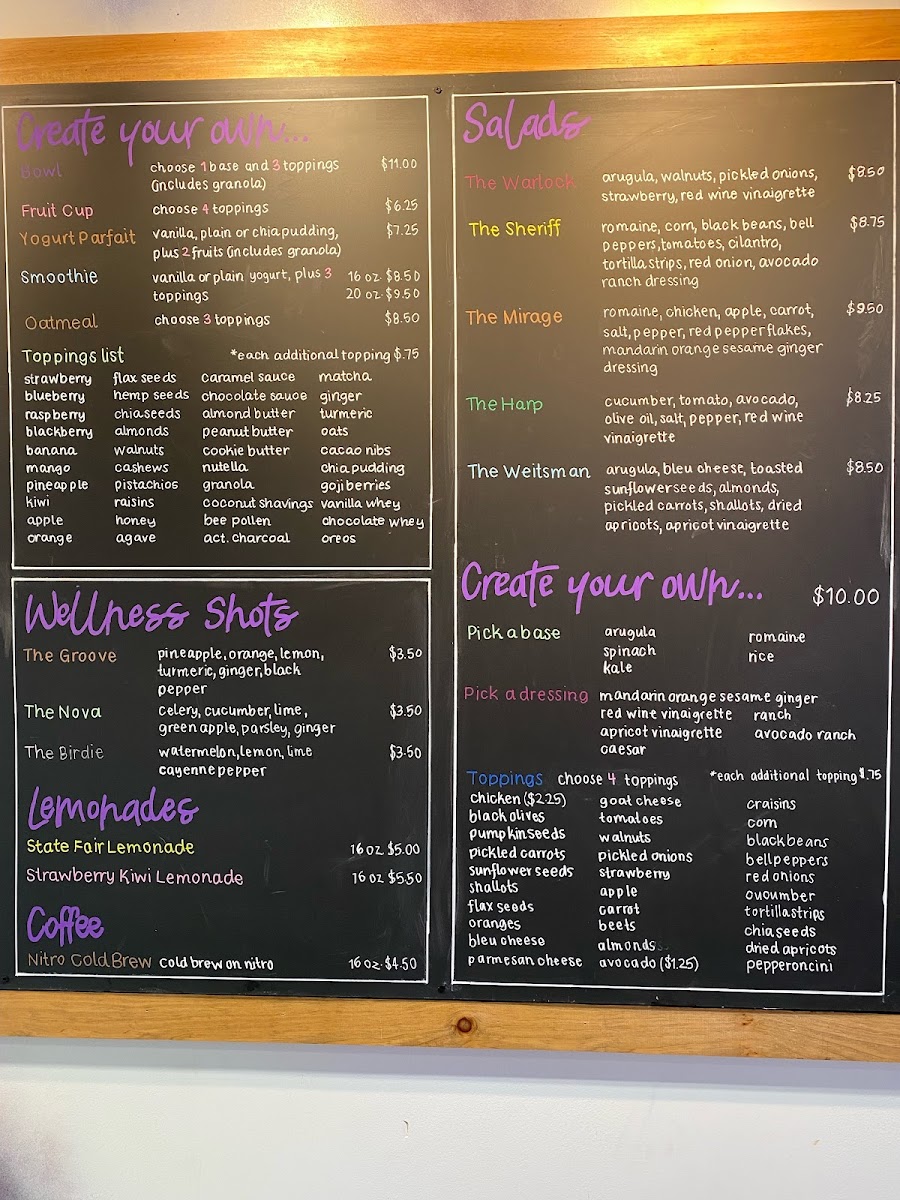 Create your own...
Bowl choose 1 base and 3 toppings $11.00
(includes granola)
Fruit Cup choose 4 toppings $6.25
Yogurt Parfait vanilla, plain or chia pudding, $7.25
plus 2 fruits (includes granola)
Smoothie vanilla or plain yogurt, plus 3 16 oz. $8.50
toppings 20 oz. $9.50
Oatmeal choose 3 toppings $8.50
Toppings list *each additional topping $.75
strawberry flax seeds caramel sauce matcha
blueberry hemp seeds chocolate sauce ginger
raspberry chia seeds almond butter turmeric
blackberry almonds peanut butter oats
banana walnuts cookie butter cacao nibs
mango cashews nutella chia pudding
pineapple pistachios granola goji berries
kiwi raisins coconut shavings vanilla whey
apple honey bee pollen chocolate whey
orange agave act. charcoal oreos
Wellness Shots
The Groove pineapple, orange, lemon, $3.50
turmeric, ginger, black
pepper
The Nova celery, cucumber, lime, $3.50
green apple, parsley, ginger
The Birdie watermelon, lemon, lime $3.50
cayenne pepper
Lemonades
State Fair Lemonade 16 oz $5.00
Strawberry Kiwi Lemonade 16 oz $5.50
Coffee
Nitro Cold Brew cold brew on nitro 16 oz. $4.50
Salads
The Warlock arugula, walnuts, pickled onions, $8.50
strawberry, red wine vinaigrette
The Sheriff romaine, corn, black beans, bell $8.75
peppers, tomatoes, cilantro,
tortilla strips, red onion, avocado
ranch dressing
The Mirage romaine, chicken, apple, carrot, $9.50
salt, pepper, red pepper flakes,
mandarin orange sesame ginger
dressing
The Harp cucumber, tomato, avocado, $8.25
olive oil, salt, pepper, red wine
vinaigrette
The Weitsman arugula, bleu cheese, toasted $8.50
sunflower seeds, almonds,
pickled carrots, shallots, dried
apricots, apricot vinaigrette
Create your own... $10.00
Pick a base arugula romaine
spinach rice
kale
Pick a dressing mandarin orange sesame ginger
red wine vinaigrette ranch
apricot vinaigrette avocado ranch
caesar
Toppings choose 4 toppings *each additional topping $.75
chicken ($2.25) goat cheese craisins
black olives tomatoes corn
pumpkin seeds walnuts black beans
pickled carrots pickled onions bell peppers
sunflower seeds strawberry red onions
shallots apple cucumber
flax seeds carrot tortilla strips
oranges beets chia seeds
bleu cheese almonds dried apricots
parmesan cheese avocado ($1.25) pepperoncini